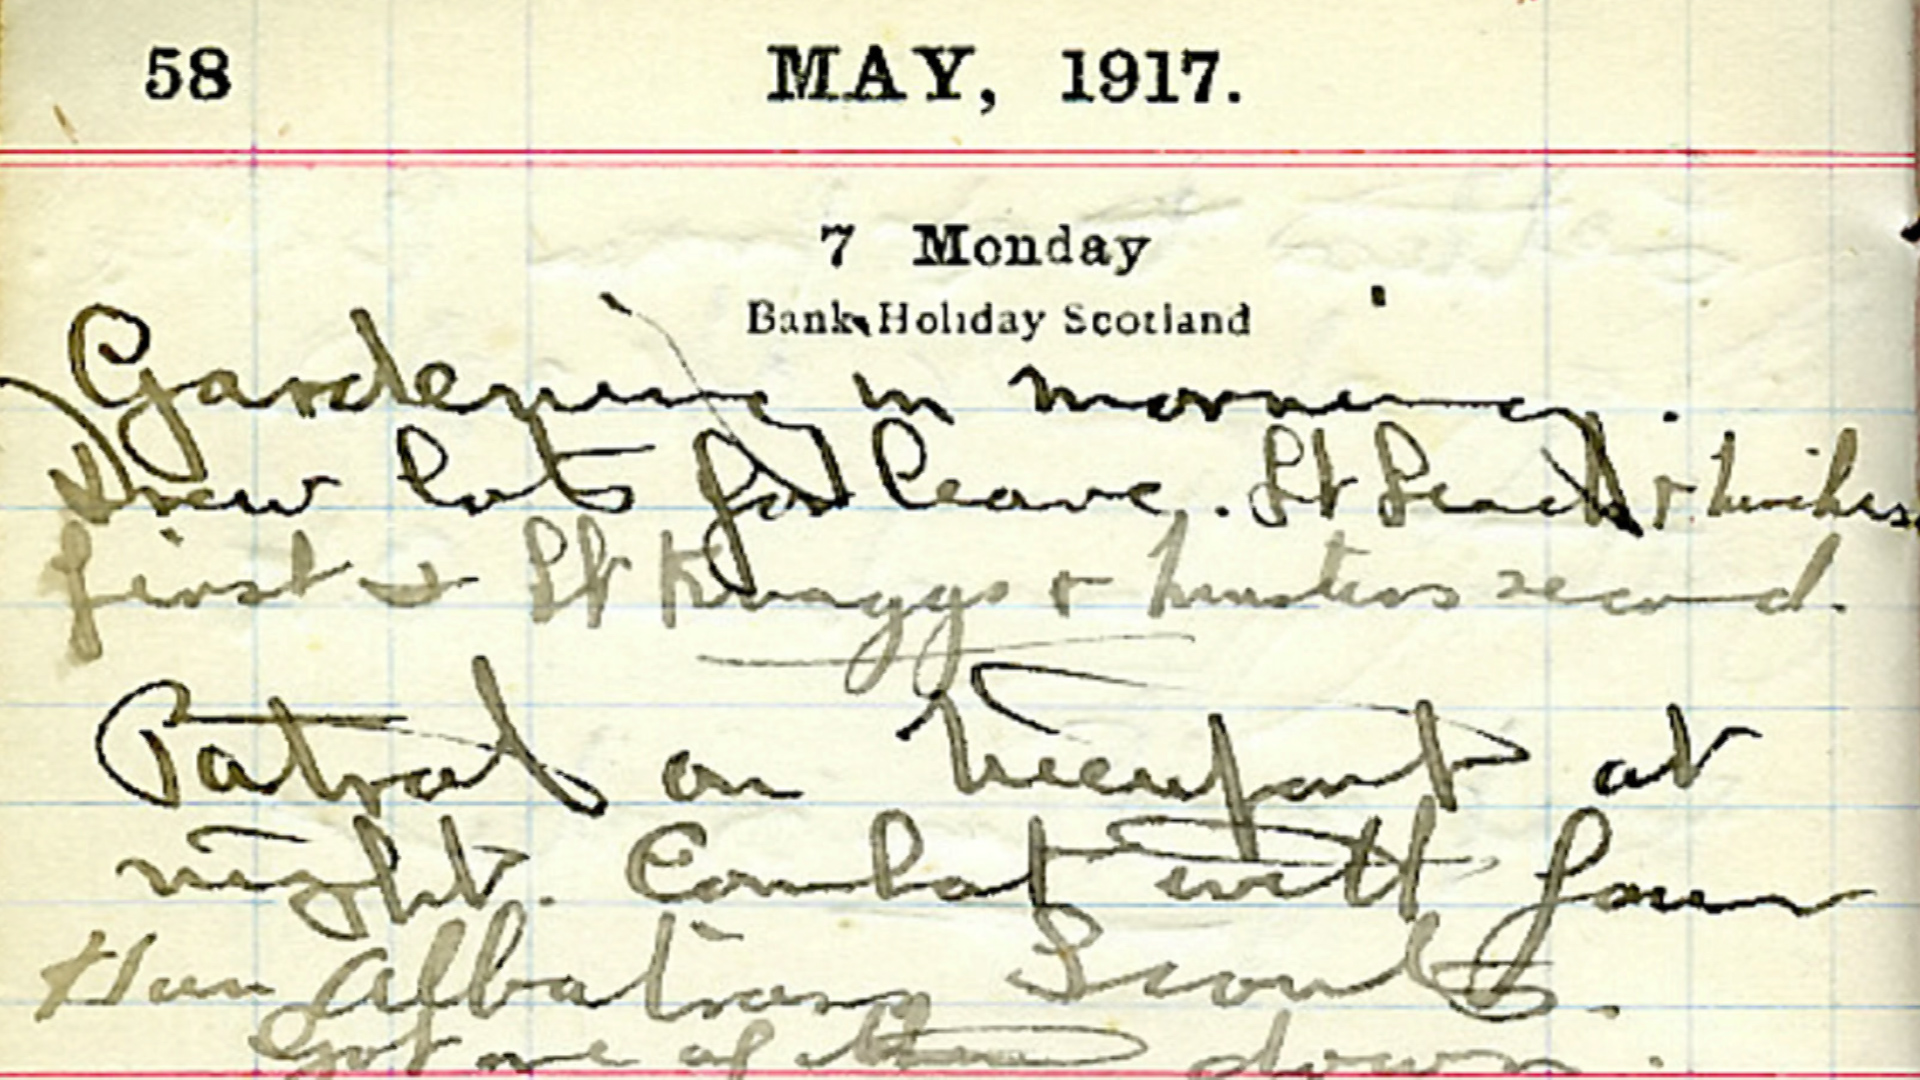 58 MAY, 1917.
7 Monday
Bank Holiday Scotland
Gardening in morning.
Drew lots for leave. Lt Leach &
first & Lt Knaggs & second.
Patrol on Nieuport at
night. Combat with four
Hun Albatross Scouts.
Got one of them down.